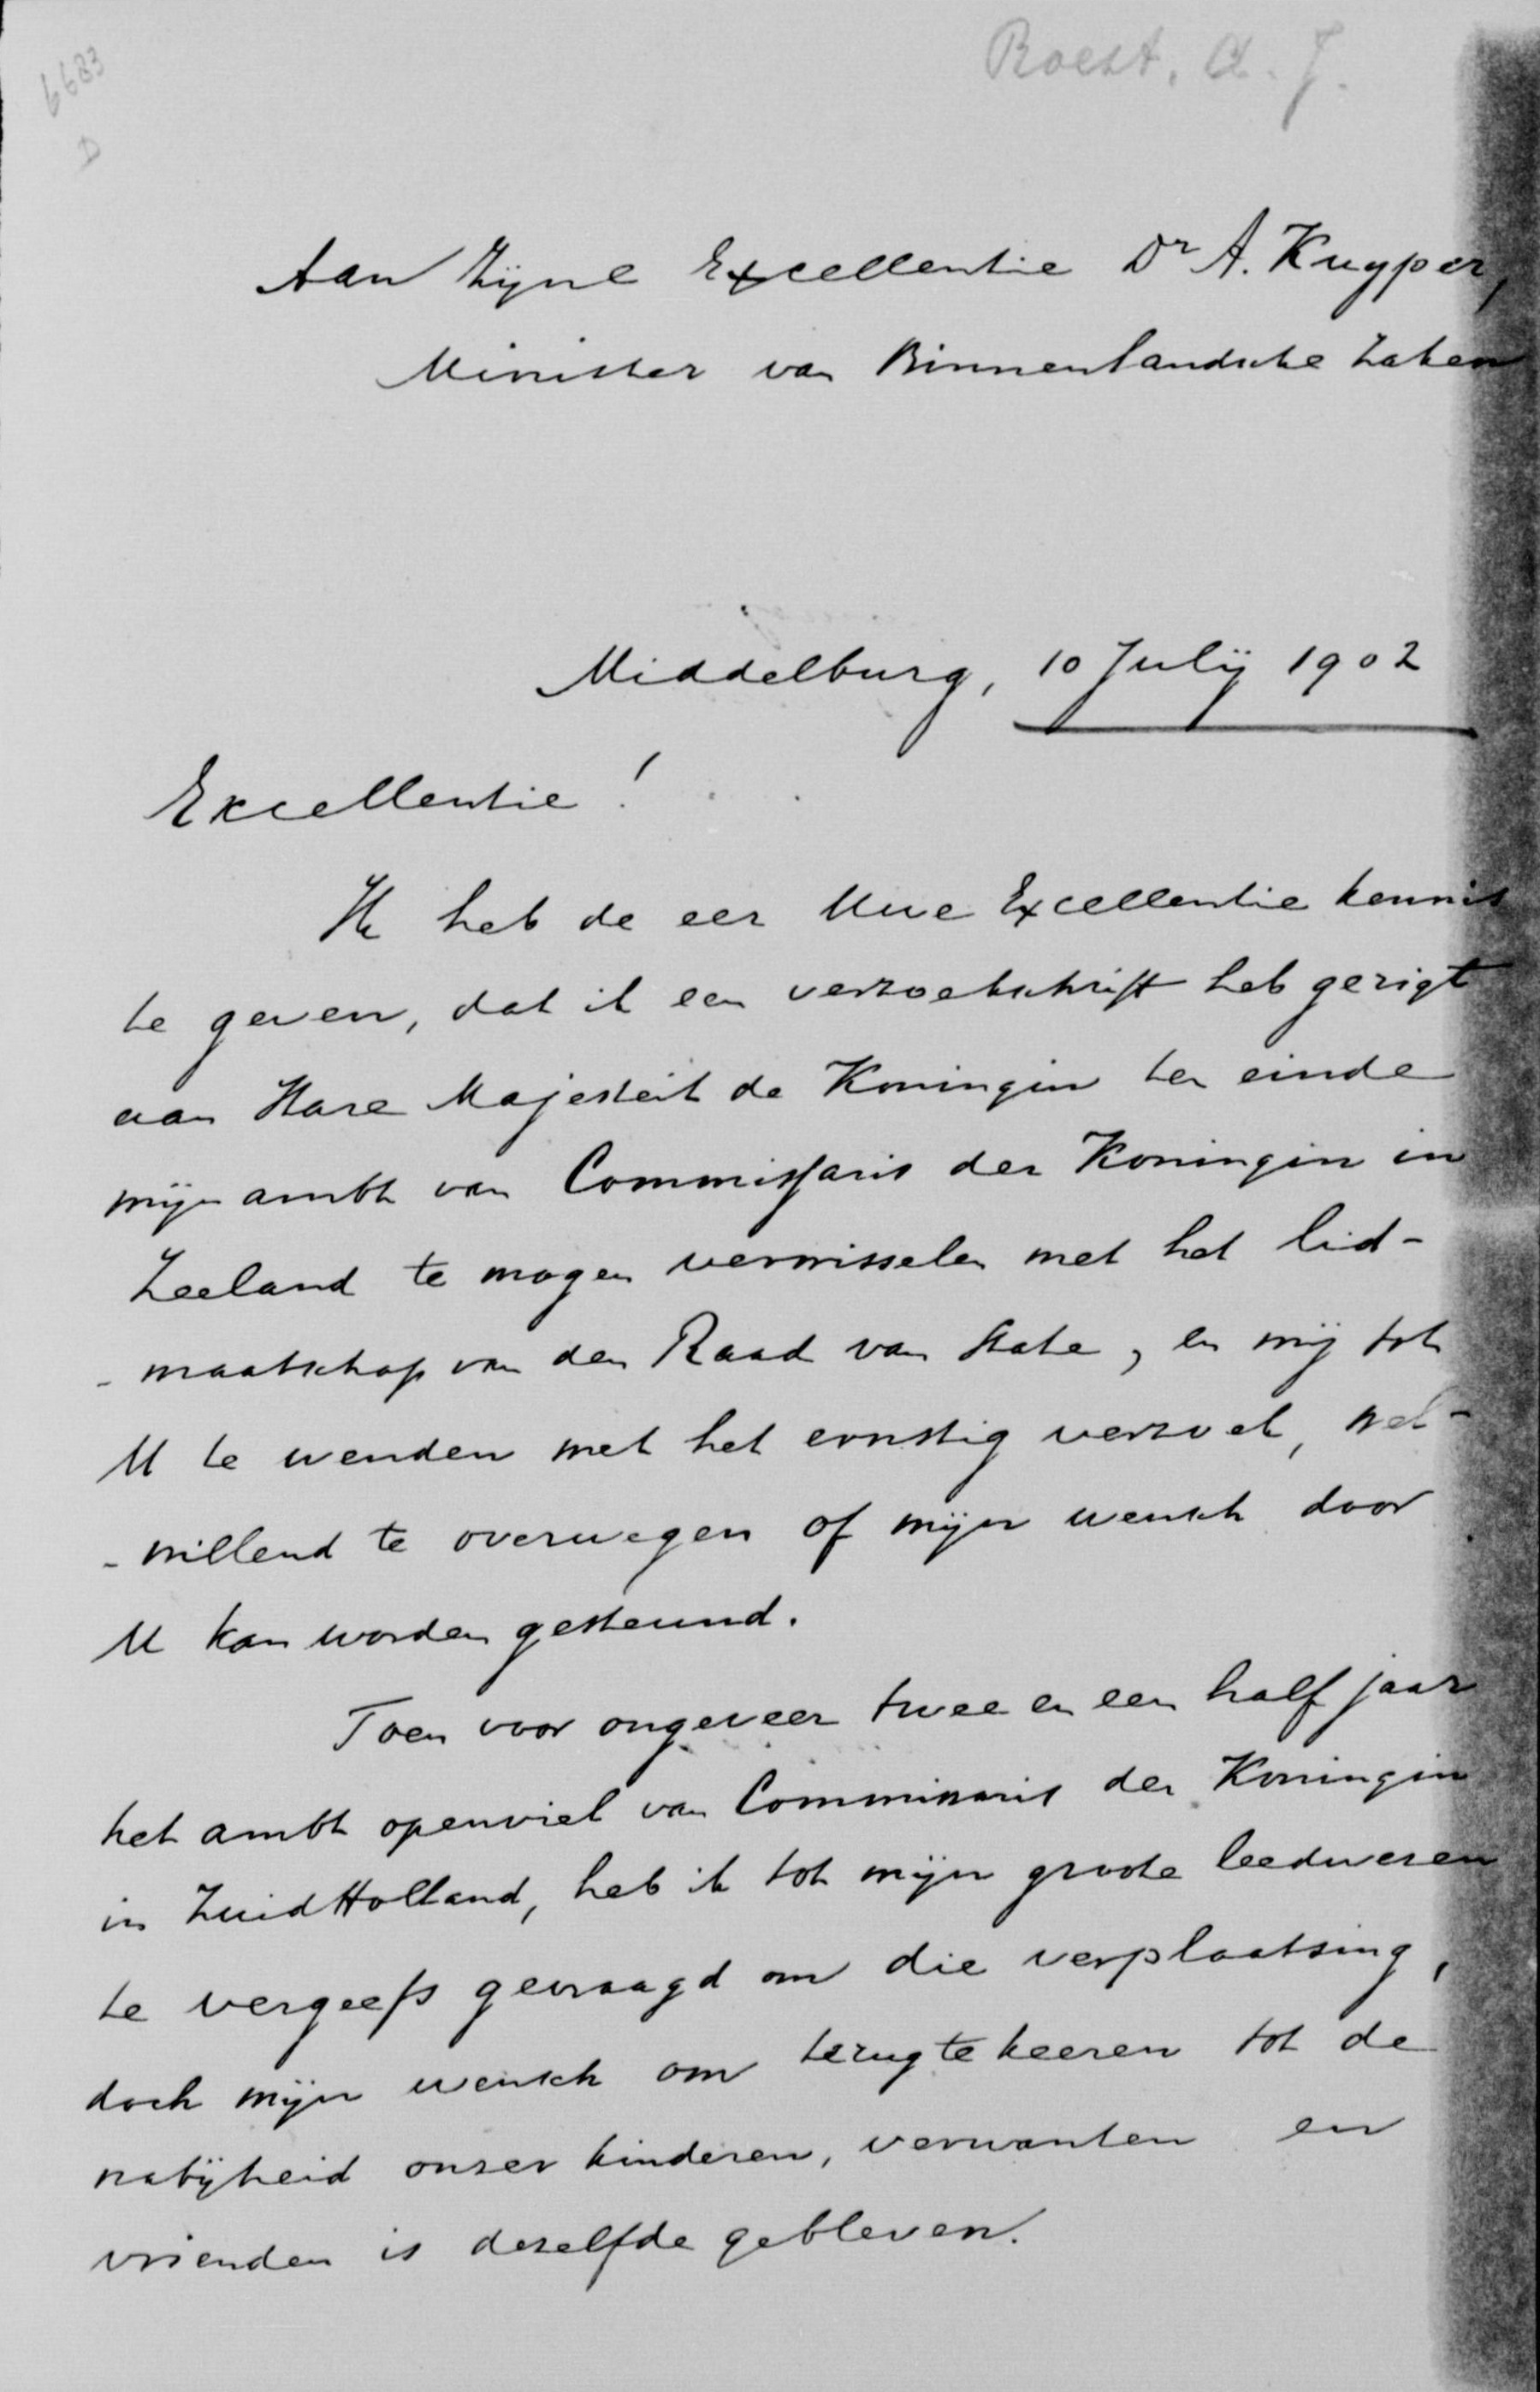 6683
D
Roest, A. J.
Aan Zijne Excellentie Dr A. Kuyper,
Minister van Binnenlandsche Zaken
Middelburg, 10 Julij 1902
Excellentie!
Ik heb de eer Uwe Excellentie kennis
te geven, dat ik een verzoekschrift heb gerigt
aan Hare Majesteit de Koningin ten einde
mijn ambt van Commissaris der Koningin in
Zeeland te mogen verwisselen met het lid-
-maatschap van den Raad van State, en mij tot
U te wenden met het ernstig verzoek, wel-
-willend te overwegen of mijn wensch door
U kan worden gesteund.
Toen voor ongeveer twee en een half jaar
het ambt openviel van Commissaris der Koningin
in Zuid Holland, heb ik tot mijn groote leedwezen
te vergeefs gevraagd om die verplaatsing,
doch mijn wensch om terug te keeren tot de
nabijheid onzer kinderen, verwanten en
vrienden is dezelfde gebleven.